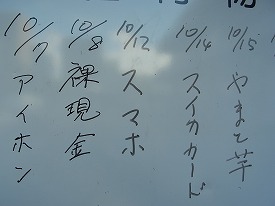 10/7 アイホン
10/8 裸現金
10/12 スマホ
10/14 スイカカード
10/15 やまと芋